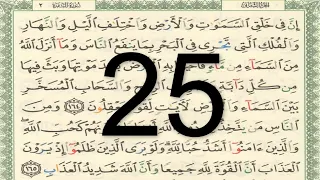 إِنَّ فِي خَلْقِ السَّمَٰوَٰتِ وَالْأَرْضِ وَاخْتِلَٰفِ الَّيْلِ وَالنَّهَارِ
وَالْفُلْكِ الَّتِي تَجْرِي فِي الْبَحْرِ بِمَا يَنفَعُ النَّاسَ وَمَا أَنزَلَ اللَّهُ
مِنَ السَّمَاءِ مِن مَوْتِهَا وَبَثَّ فِيهَا
مِن كُلِّ دَابَّةٍ وَالسَّحَابِ الْمُسَخَّرِ
بَيْنَ السَّمَاءِ لَآيَٰتٍ لِّقَوْمٍ يَعْقِلُونَ ١٦٤ وَمِنَ
النَّاسِ مَن يَتَّخِذُ كَحُبِّ اللَّهِ
وَالَّذِينَ ءَامَنُوا أَشَدُّ حُبًّا لِّلَّهِ وَلَوْ يَرَى الَّذِينَ ظَلَمُوا إِذْ يَرَوْنَ
الْعَذَابَ أَنَّ الْقُوَّةَ لِلَّهِ جَمِيعًا وَأَنَّ اللَّهَ شَدِيدُ الْعَذَابِ ١٦٥
25